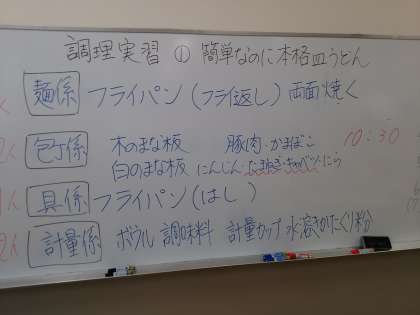 調理実習 ① 簡単なのに本格皿うどん
麺係 フライパン(フライ返し) 両面焼く
2人 包丁係 木のまな板 豚肉・かまぼこ 10:30
白のまな板 にんじん・たまねぎ・きゃべつ・にら
1人 具係 フライパン(はし)
2人 計量係 ボウル 調味料 計量カップ 水溶きかたくり粉